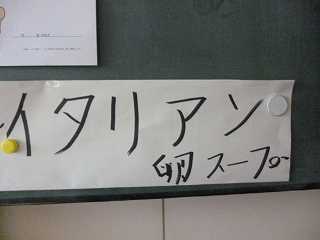 イタリアン
卵スープ